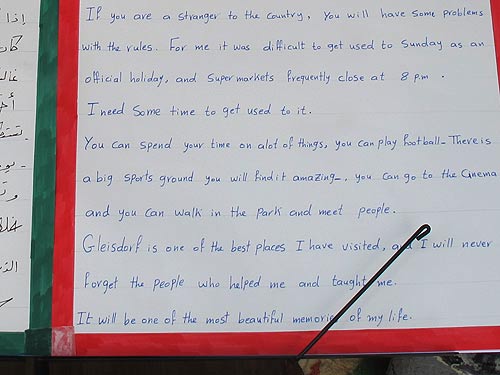 If you are a stranger to the country, You will have some problems
with the rules. For me it was difficult to get used to Sunday as an
official holiday, and Supermarkets frequently close at 8 p.m.
I need Some time to get used to it.
You can spend your time on alot of things, you can play football_ There is
a big sports ground you will find it amazing_, you can go to the Cinema
and you can walk in the park and meet people.
Gleisdorf is one of the best places I have visited, and I will never
forget the people who helped me and taught me.
It will be one of the most beautiful memories of my life.
إذا
كان